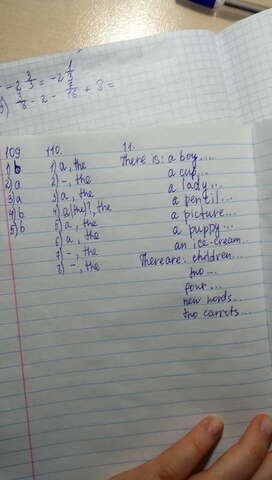 109
1) b
2) a
3) a
4) b
5) b
110.
1) a, the
2) -, the
3) a, the
4) (the)?, the
5) a, the
6) a, the
7) -, the
8) -, the
11.
There is: a boy...
a cup...
a lady...
a pencil...
a picture...
a puppy...
an ice-cream...
There are: children...
two...
four...
new words...
two carrots...